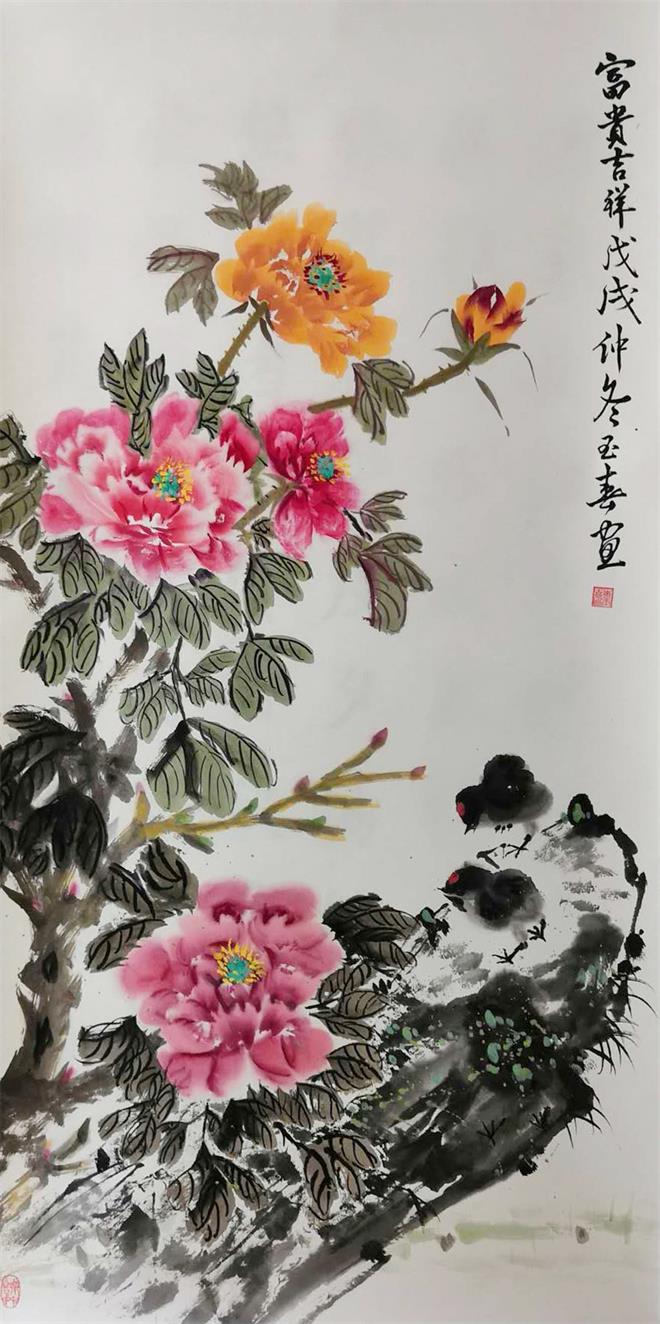 富贵吉祥戊戌仲冬玉春画